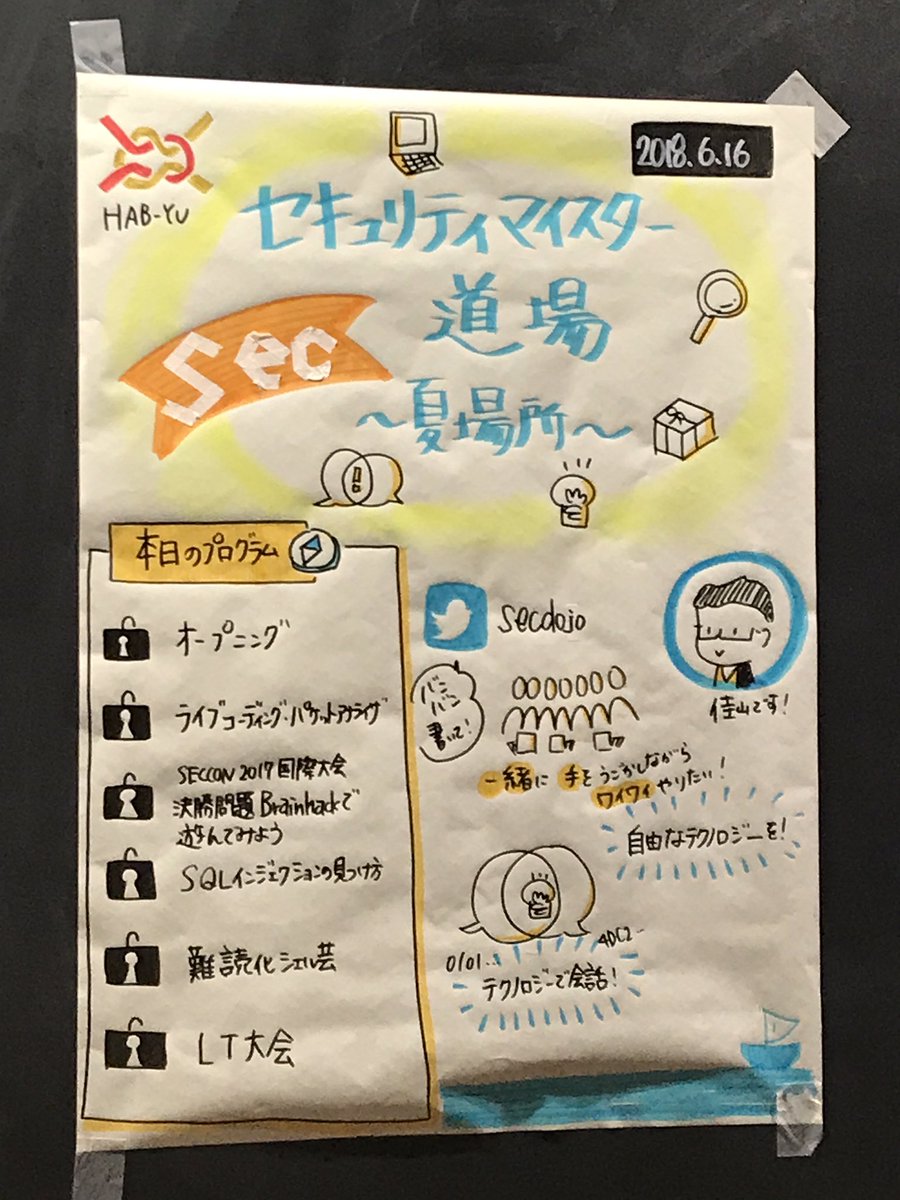 HAB-YU
2018.6.16
セキュリティマイスター
道場
Sec
～夏場所～
本日のプログラム
オープニング
ライブコーディング・パケットアナライザ
SECCON 2017 国際大会
決勝問題 Brainhackで
遊んでみよう
SQLインジェクションの見つけ方
難読化シェル芸
LT大会
secdojo
佳山です!
バン
バン
書いて!
一緒に 手を うごかしながら
ワイワイ やりたい!
自由なテクノロジーを!
0101..
4DC2..
テクノロジーで会話!